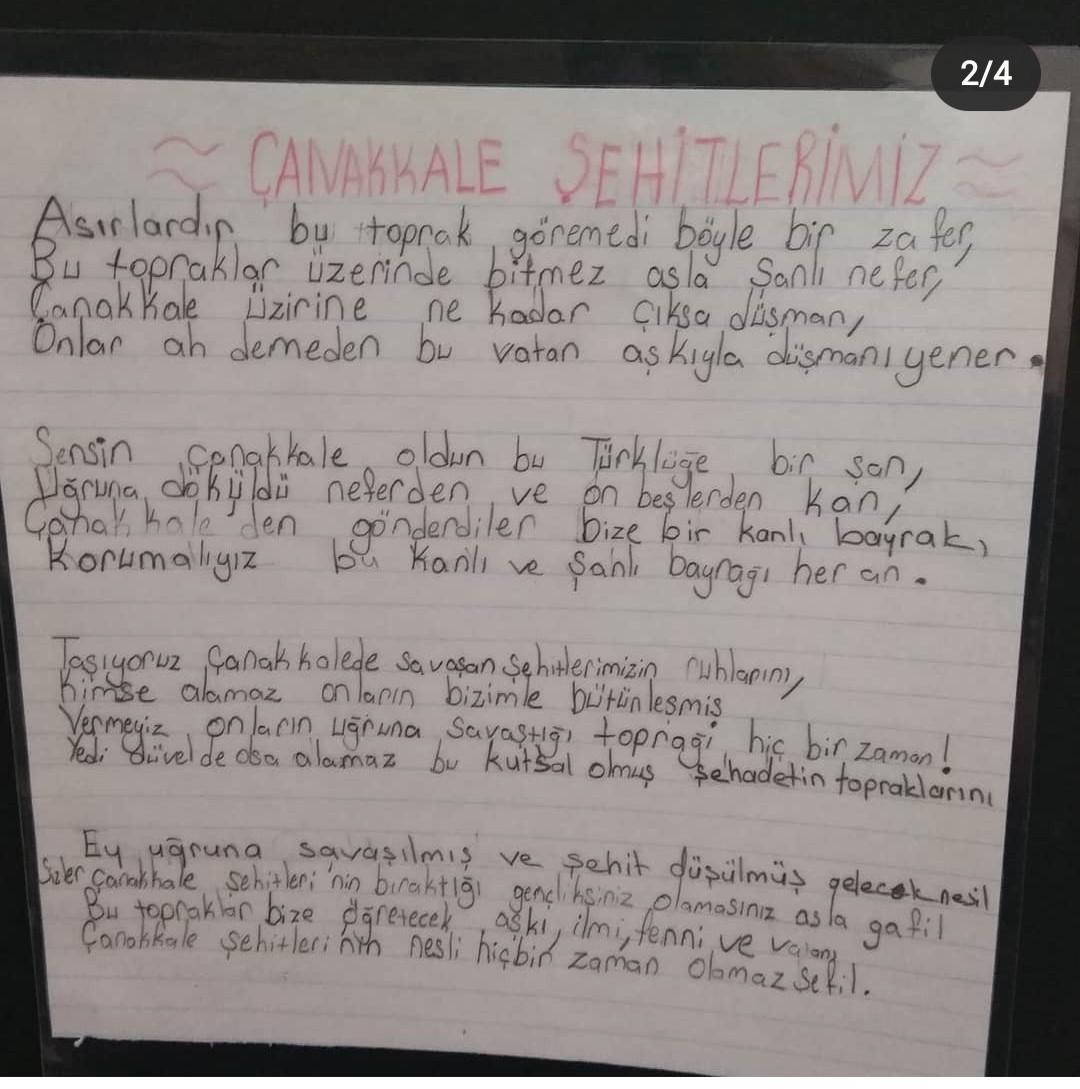 2/4
≈ ÇANAKKALE ŞEHİTLERİMİZ ≈
Asırlardır bu toprak göremedi böyle bir zafer,
Bu topraklar üzerinde bitmez asla Şanlı nefer,
Çanakkale üzirine ne kadar çıksa düşman,
Onlar ah demeden bu vatan aşkıyla düşmanı yener.
Sensin Çanakkale oldun bu Türklüğe bir şan,
Uğruna döküldü neferden ve on beşlerden kan,
Çanakkale'den gönderdiler bize bir kanlı bayrak,
Korumalıyız bu Kanlı ve Şanlı bayrağı her an.
Taşıyoruz Çanakkalede savaşan şehitlerimizin ruhlarını,
Kimse alamaz onların bizimle bütünleşmiş
Vermeyiz onların uğruna savaştığı toprağı hiç bir zaman!
Yedi düvel de olsa alamaz bu kutsal olmuş şehadetin topraklarını
Ey uğruna savaşılmış ve şehit düşülmüş gelecek nesil
Sizler Çanakkale şehitleri'nin bıraktığı gençliksiniz olamasınız asla gafil
Bu topraklar bize öğretecek aşkı, ilmi, fenni ve vatanı
Çanakkale şehitleri'nin nesli hiçbir zaman olamaz sefil.